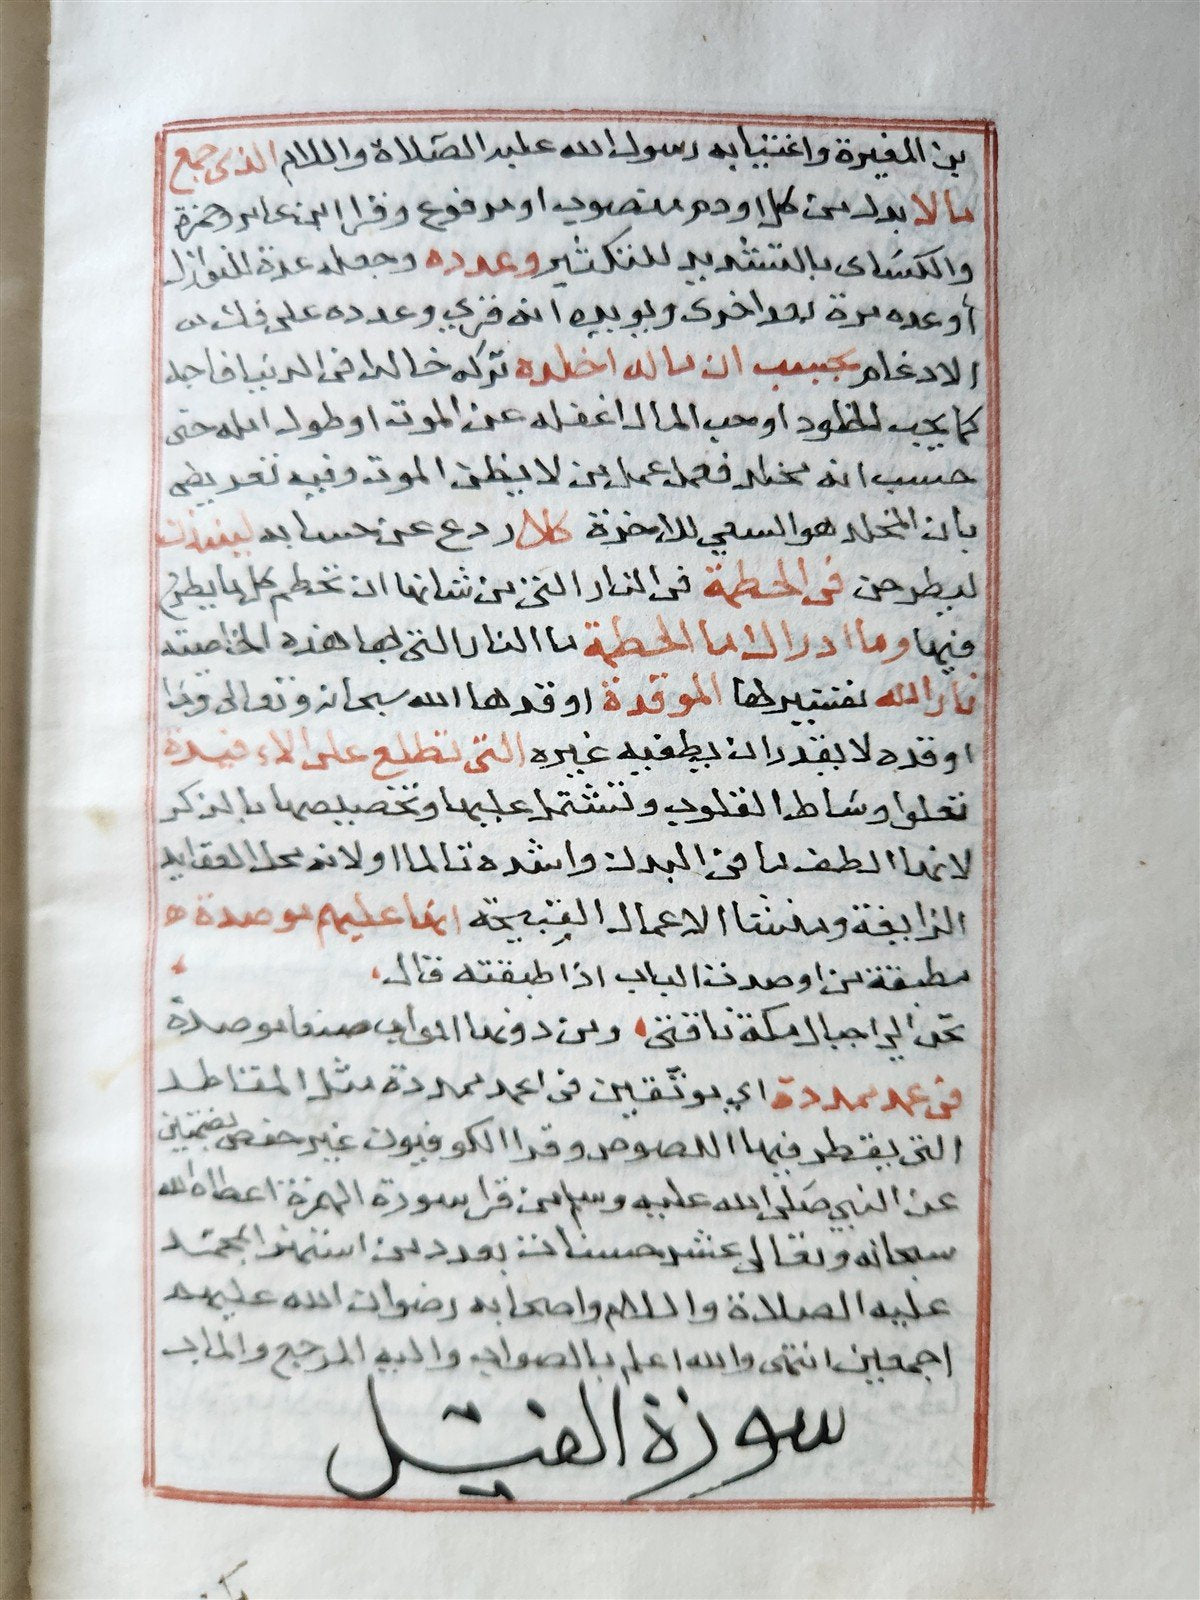 بن المغيرة واغتيابه رسول الله عليه الصلاة والسلام الذى جمع
مالا بدل من كل او ذم منصوب او مرفوع وقرا ابن عامر وحمزة
والكسائ بالتشديد للتكثير وعدده وجعله عدة للنوازل
أو عده مرة بعد اخرى ويويده انه قرئ وعدده على فك
الادغام يحسب ان ماله اخلده تركه خالدا فى الدنيا فاحبه
كما يحب الخلود او حب المال اغفله عن الموت او طول امله حتى
حسب انه مخلد فعمل عمل من لا يظن الموت وفيه تعريض
بان المخلد هو السعي للاخرة كلا ردع عن حسابه لينبذن
ليطرحن فى الحطمة فى النار التى من شانها ان تحطم كل ما يطرح
فيها وما ادراك ما الحطمة ما النار التى لها هذه الخاصيته
نار الله تفسير لها الموقدة اوقدها الله سبحانه وتعالى وما
اوقده لا يقدر ان يطفيه غيره التى تطلع على الاءفيدة
تعلوا وساط القلوب وتشتمل عليها وتخصيصها بالذكر
لانها الطف ما فى البدن واشده تالما او لانه محل العقايد
الزايفة ومنشا الاعمال القبيحة انها عليهم موصدة ه
مطبقة من اوصدت الباب اذا طبقته قال
تحن الى اجبال مكة ناقتى ومن دونها ابواب صنعا موصدة
فى عمد ممددة اي موثقين فى اعمد ممددة مثل المقاطـد
التى يقطر فيها اللصوص وقرا الكوفيون غير حفص بضمتين
عن النبي صلى الله عليه وسلم من قرا سورة الهمزة اعطاه الله
سبحانه وتعالى عشر حسنات بعدد من استهزا بمحمد
عليه الصلاة والسلام واصحابه رضوان الله عليهم
اجمعين انتهى والله اعلم بالصواب واليه المرجع والماب
سورة الفيل